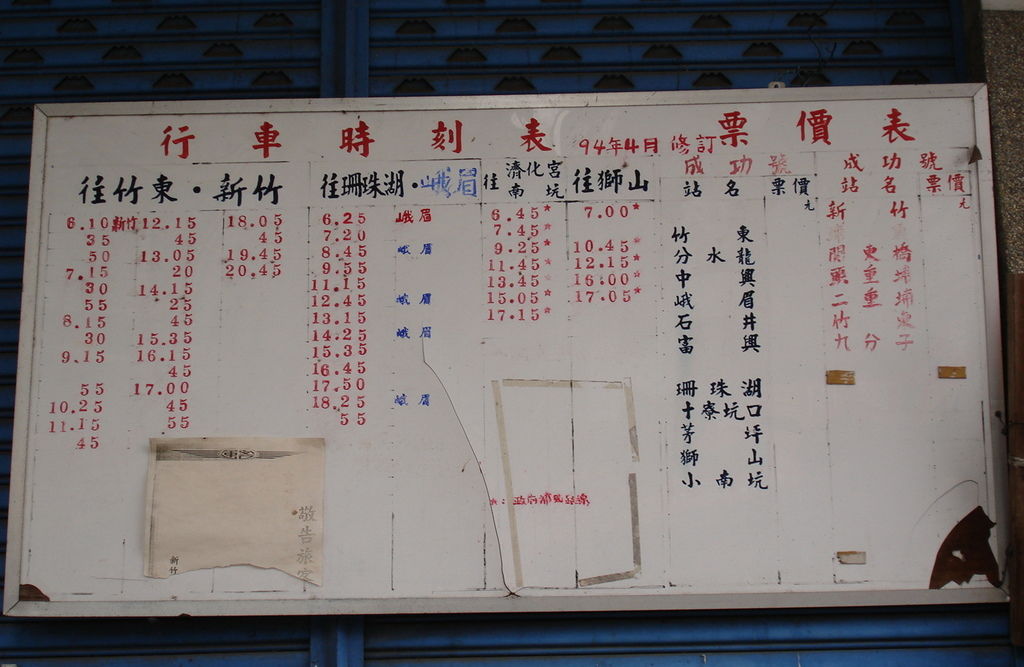 行車時刻表 94年4月 修訂 票價表
往竹東·新竹
6.10 新竹 12.15 18.05
35 45 45
50 13.05 19.45
7.15 20 20.45
30 14.15
55 25
8.15 45
30 15.35
9.15 16.15
45
55 17.00
10.25 45
11.15 55
45
往珊珠湖·峨眉
6.25 峨眉
7.20
8.45 峨眉
9.55
11.15
12.45 峨眉
13.15
14.25 峨眉
15.35
16.45
17.50
18.25 峨眉
55
往 濟化宮 南坑
6.45*
7.45*
9.25*
11.45*
13.45*
15.05*
17.15*
往獅山
7.00*
10.45*
12.15*
16.00*
17.05*
成功號
站名 票價
元
竹東
分水龍
中興
峨眉
石井
富興
珊珠湖
十寮坑口
茅坪
獅山
小南坑
成功號
站名 票價
元
新竹
敬告旅客
新竹